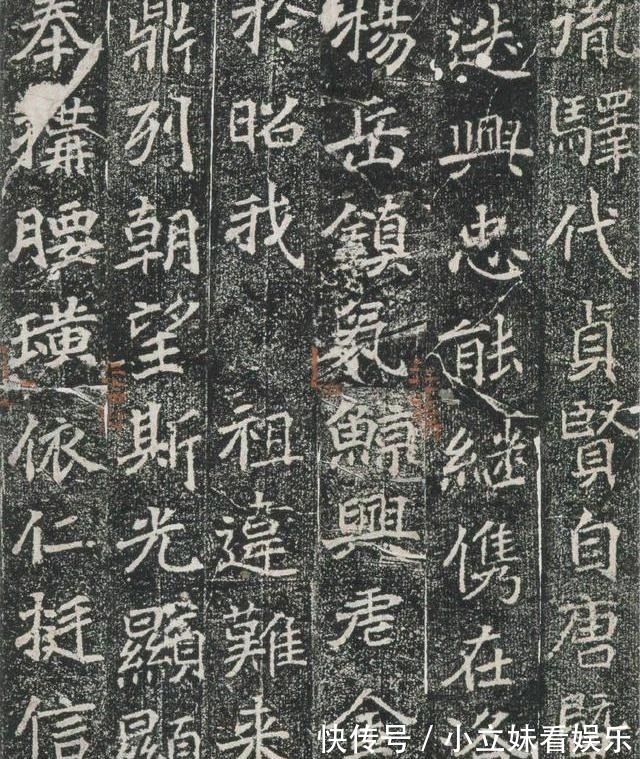 胤驛代貞賢自唐
迭興忠能継儁在
楊岳鎮氣鯨興君全
於昭我祖違難来
鼎列朝望斯光顯顯
奉腰璜依仁挺信
快传号/小立妹看娱乐